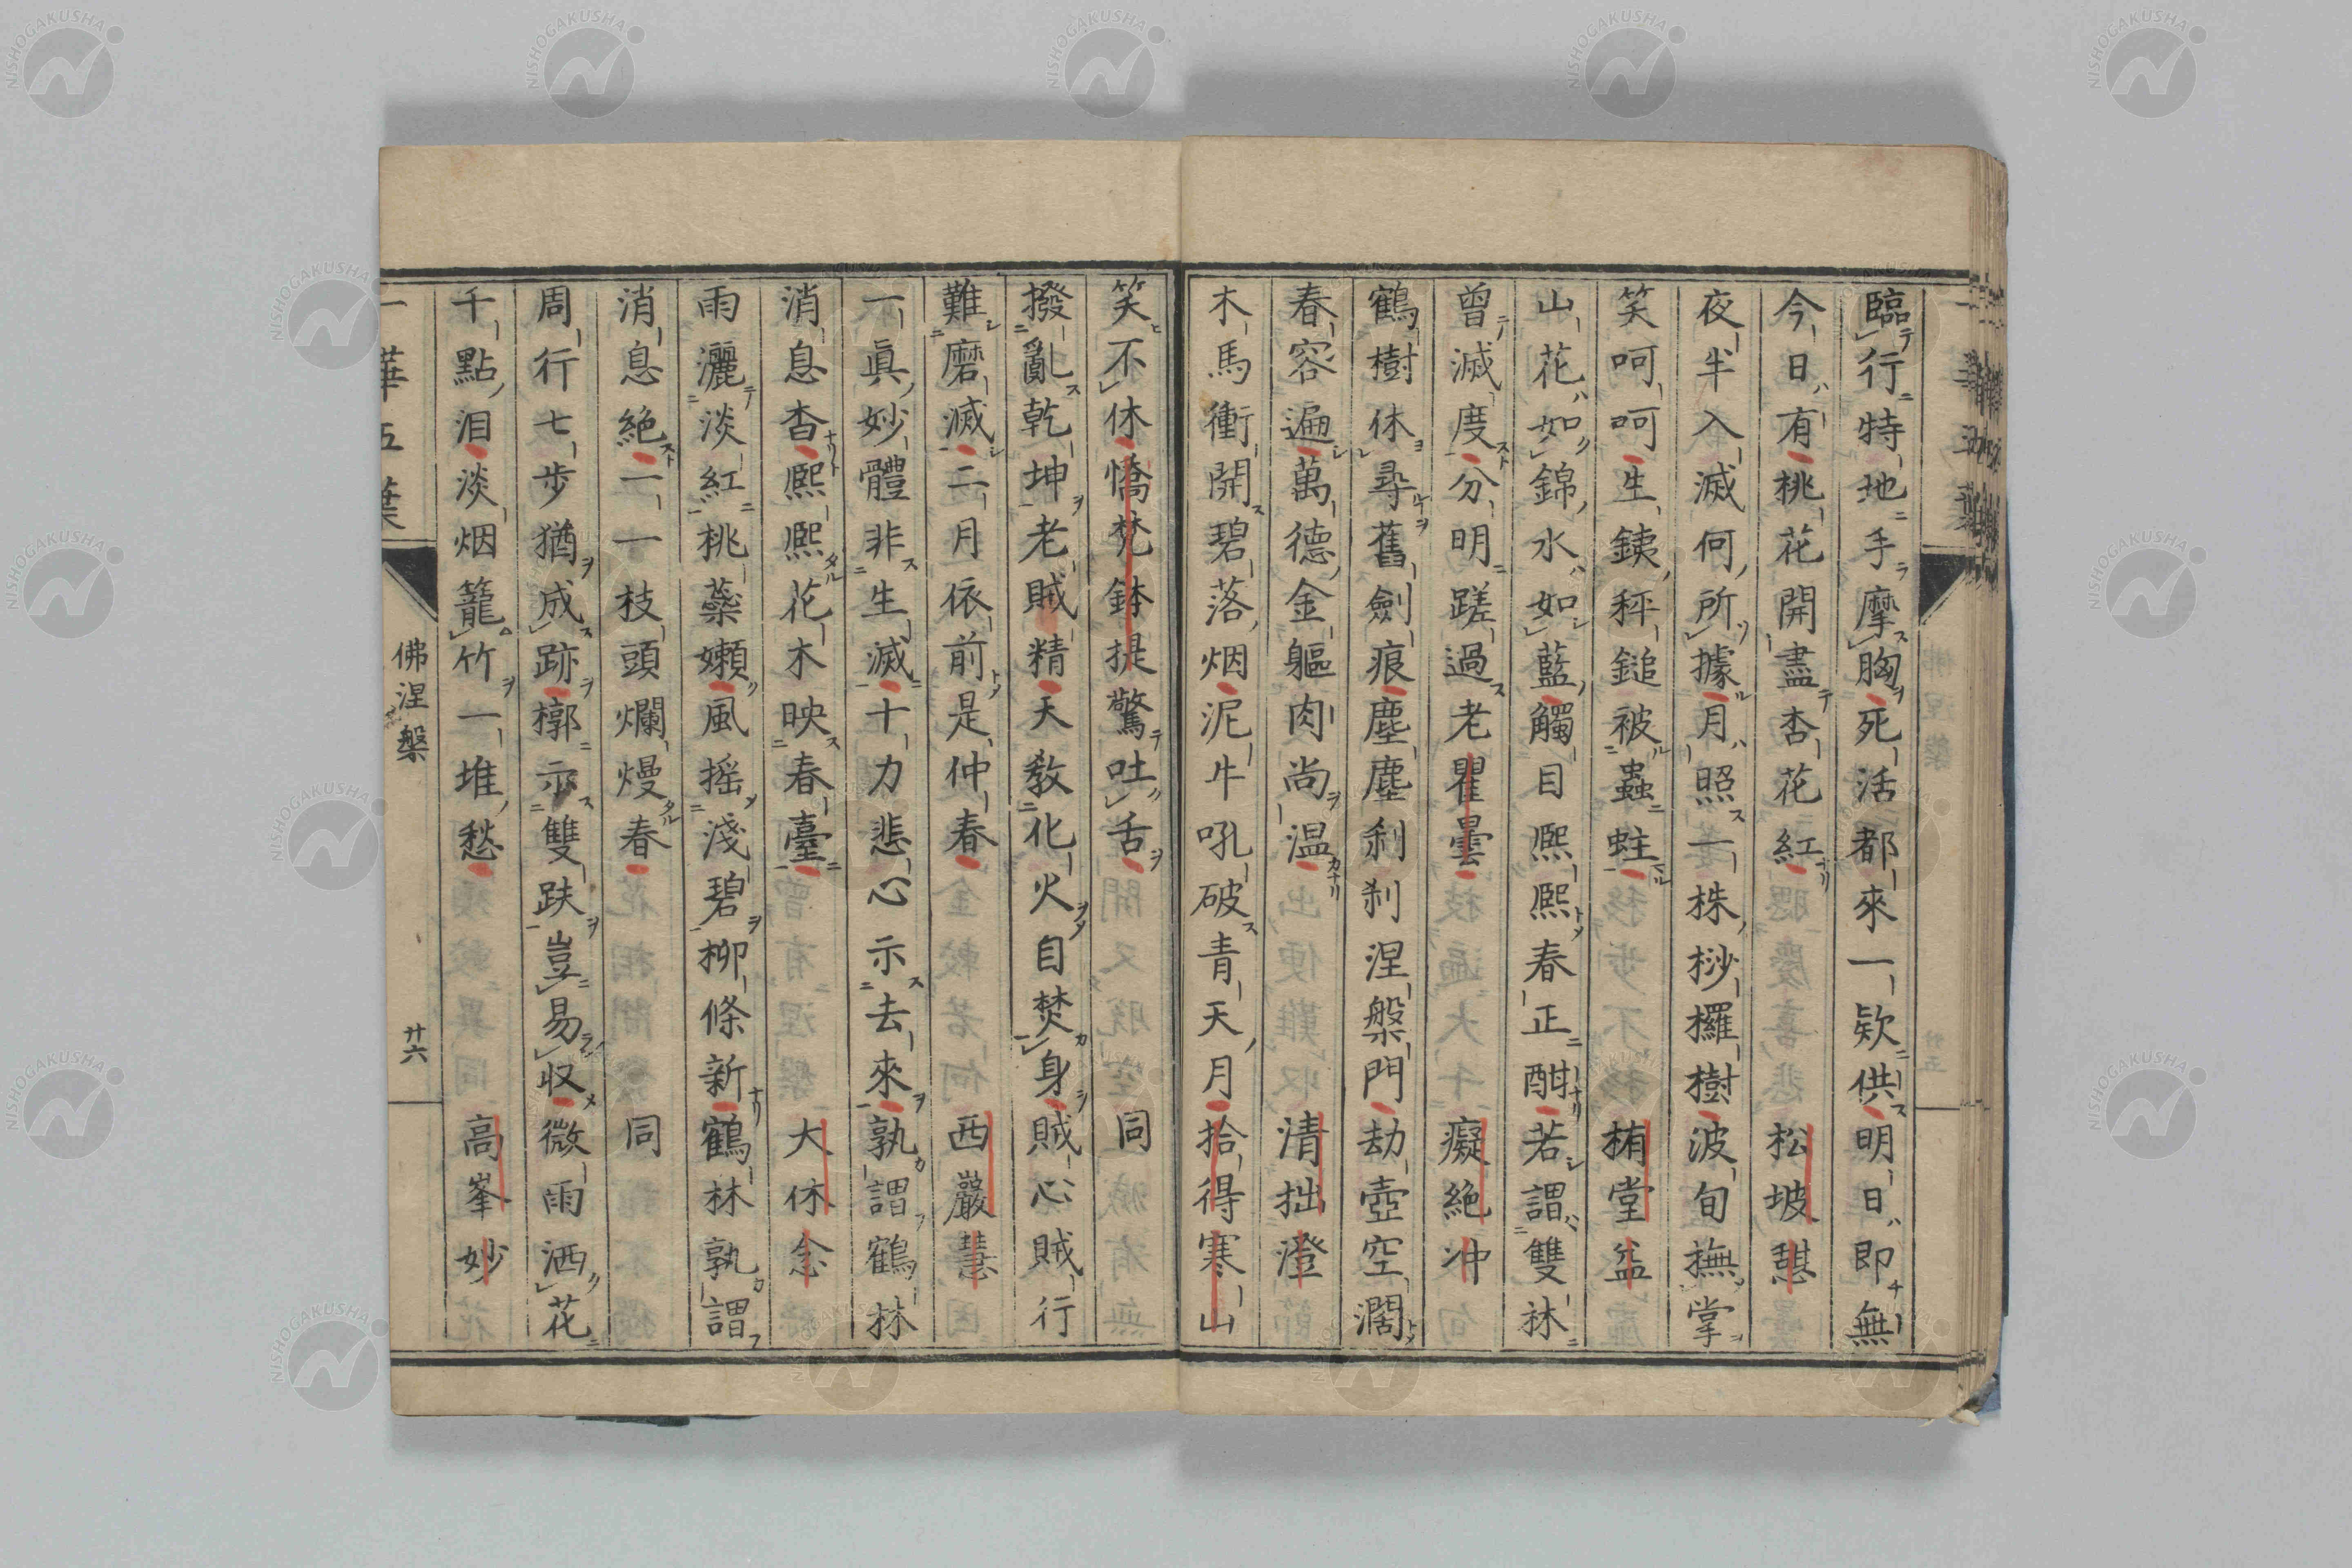 臨行特地手摩胸死活都來一欵供明日即無
今日有桃花開盡杏花紅　松坡憇
夜半入滅何所據月照一株桫欏樹波旬撫掌
笑呵呵生鉄秤鎚被蟲蛀　栯堂益
山花如錦水如藍觸目熈熈春正酣若謂雙林
曾滅度分明蹉過老瞿曇　癡絶冲
鶴樹休尋舊劍痕塵塵刹刹涅槃門劫壺空濶
春容遍萬德金軀肉尚温　清拙澄
木馬衝開碧落烟泥牛吼破青天月拾得寒山
笑不休憍梵鉢提驚吐舌　同
撥亂乾坤老賊精天教化火自焚身賊心賊行
難磨滅二月依前是仲春　西巖慧
一眞妙體非生滅十力悲心示去來孰謂鶴林
消息杳熈熈花木映春臺　大休念
雨灑淡紅桃蘂嫩風摇淺碧柳條新鶴林孰謂
消息絶一一枝頭爛熳春　同
周行七步猶成跡槨示雙趺豈易収微雨洒花
千點泪淡烟籠竹一堆愁　高峯妙
一華五葉
佛涅槃
廿六